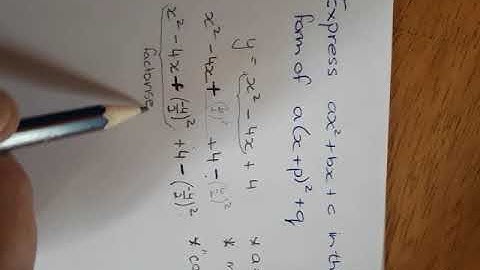 Express ax² + bx + c in th
form of a(x+p)² + q
y = x² - 4x + 4 * a
x² - 4x + (-4/2)² + 4 - (-4/2)² *
x² - 4x + (-4/2)² + 4 - (-4/2)² * "co
factorise